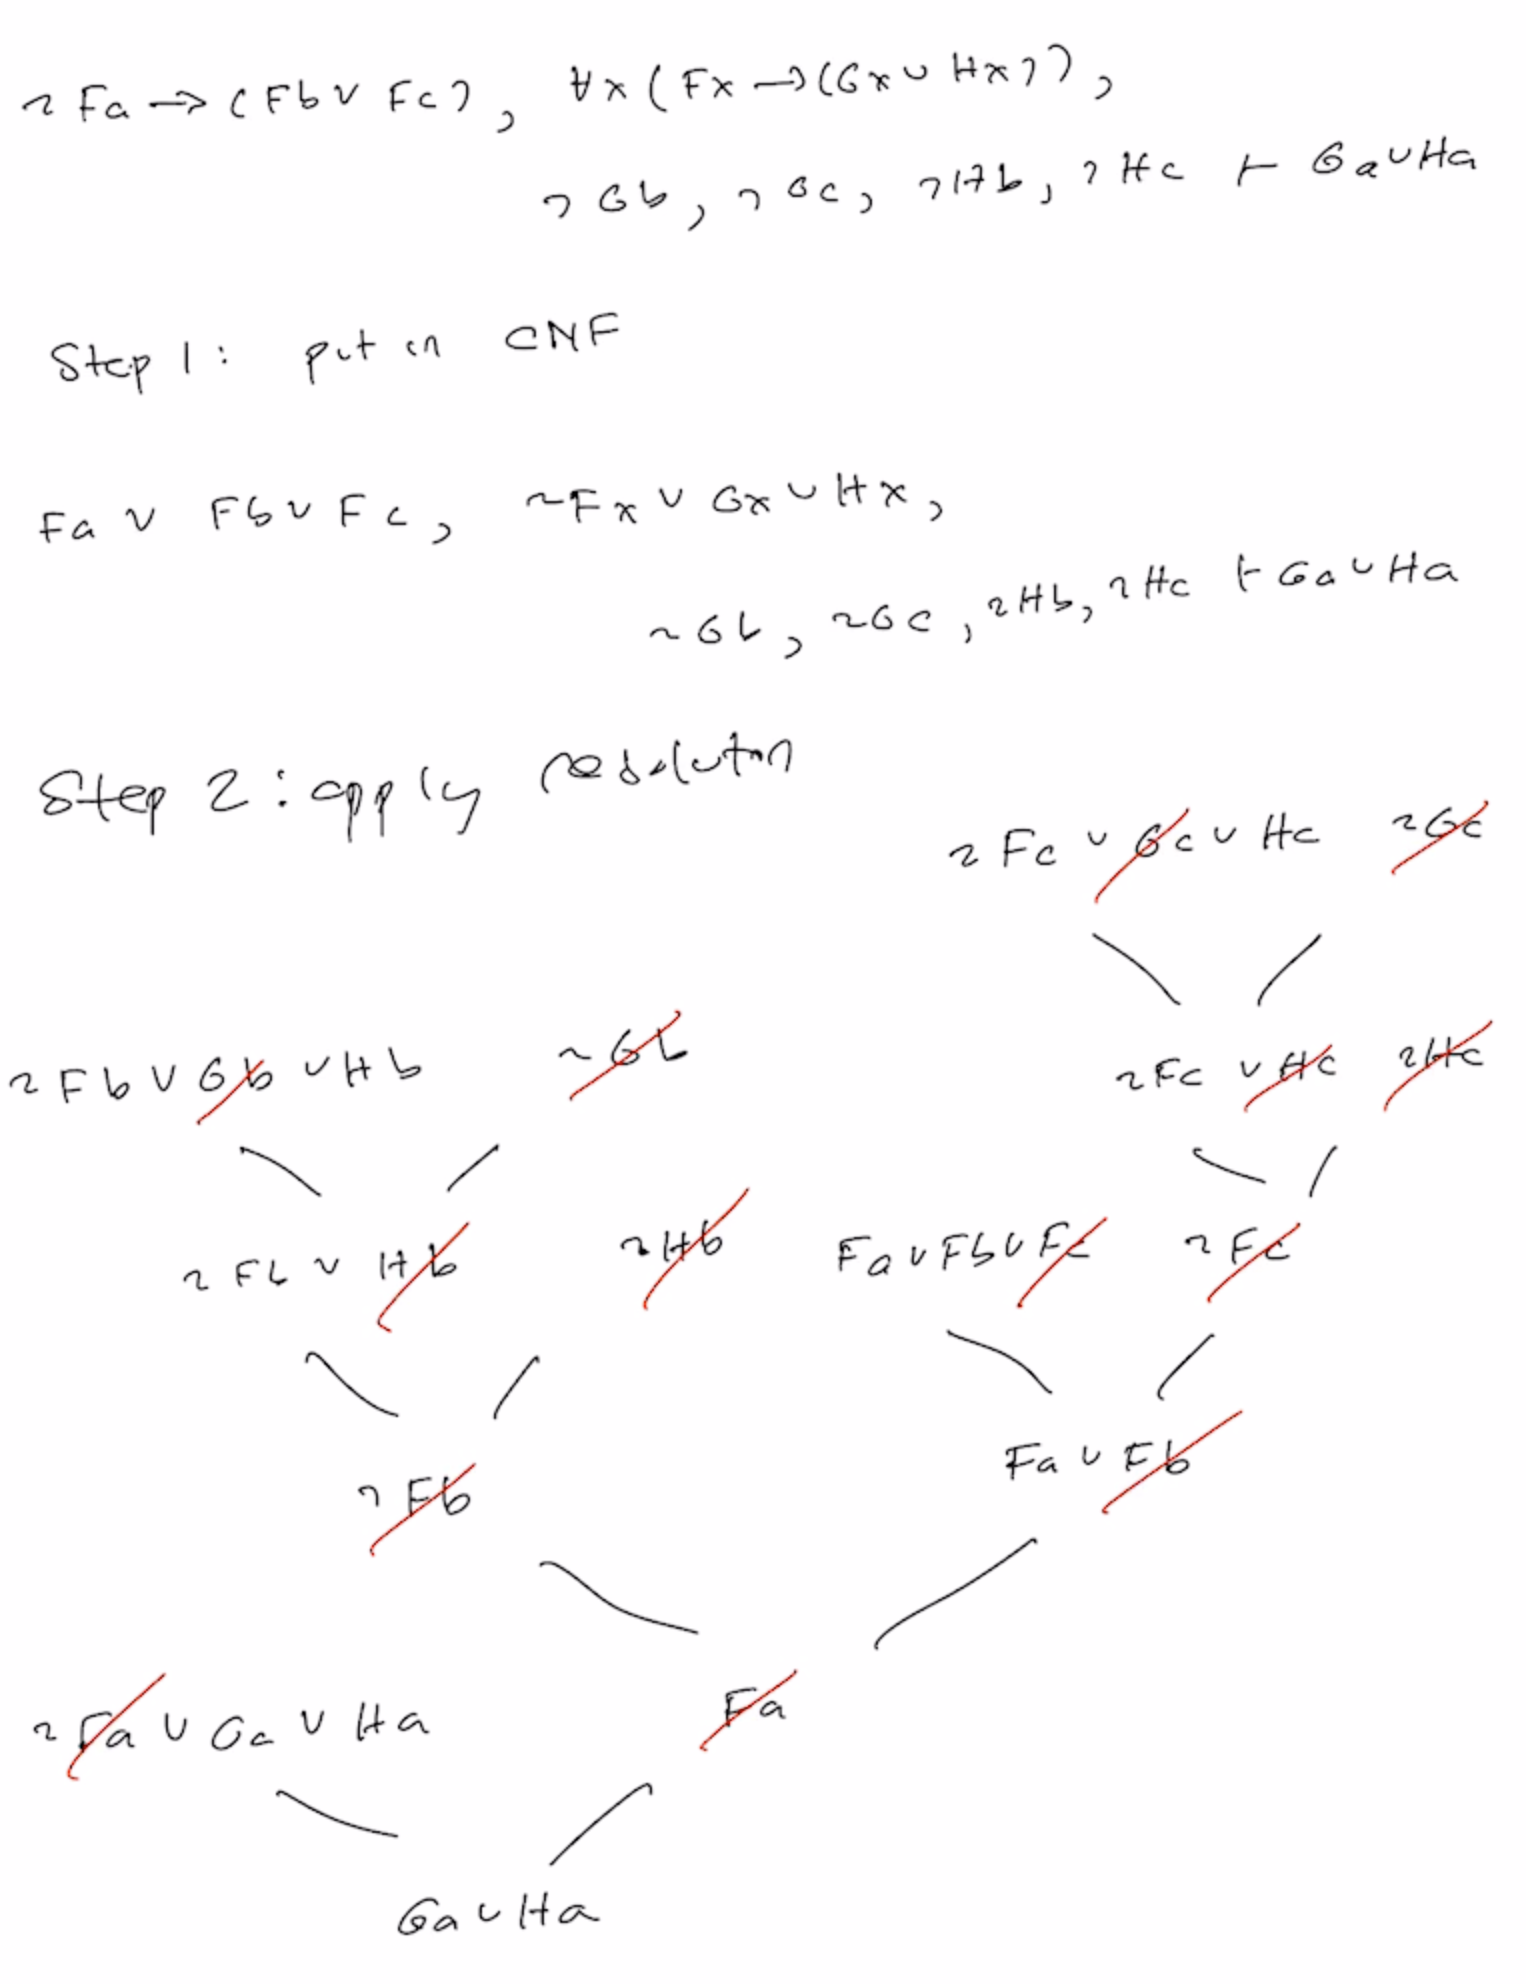 ~Fa → (Fb ∨ Fc), ∀x(Fx → (Gx ∨ Hx)),
¬Gb, ¬Gc, ¬Hb, ¬Hc ⊢ Ga ∨ Ha
Step 1: put in CNF
Fa ∨ Fb ∨ Fc, ~Fx ∨ Gx ∨ Hx,
~Gb, ~Gc, ~Hb, ~Hc ⊢ Ga ∨ Ha
Step 2: apply resolution
~Fc ∨ Gc ∨ Hc ~Gc
~Fb ∨ Gb ∨ Hb ~Gb ~Fc ∨ Hc ~Hc
~Fb ∨ Hb ~Hb Fa ∨ Fb ∨ Fc ~Fc
¬Fb Fa ∨ Fb
~Fa ∨ Ga ∨ Ha Fa
Ga ∨ Ha